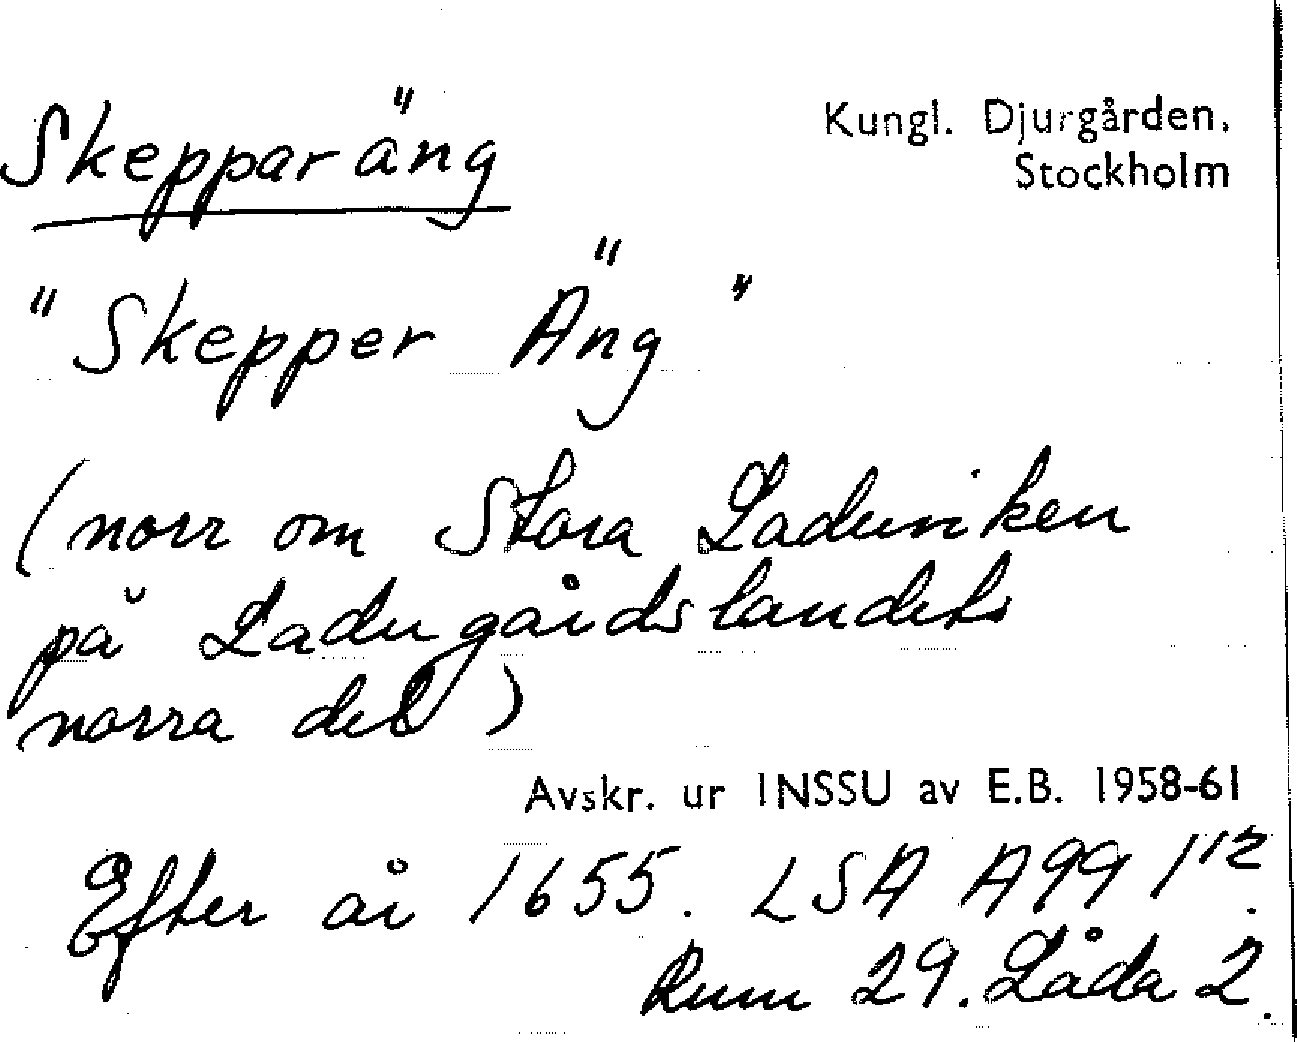 Skepparäng
Kungl. Djurgården,
Stockholm
"Skepper Äng"
(norr om Stora Laduviken
på Ladugårdslandets
norra del)
Avskr. ur INSSU av E.B. 1958-61
Efter år 1655. LSA A99 1¹².
Rum 29. Låda 2.